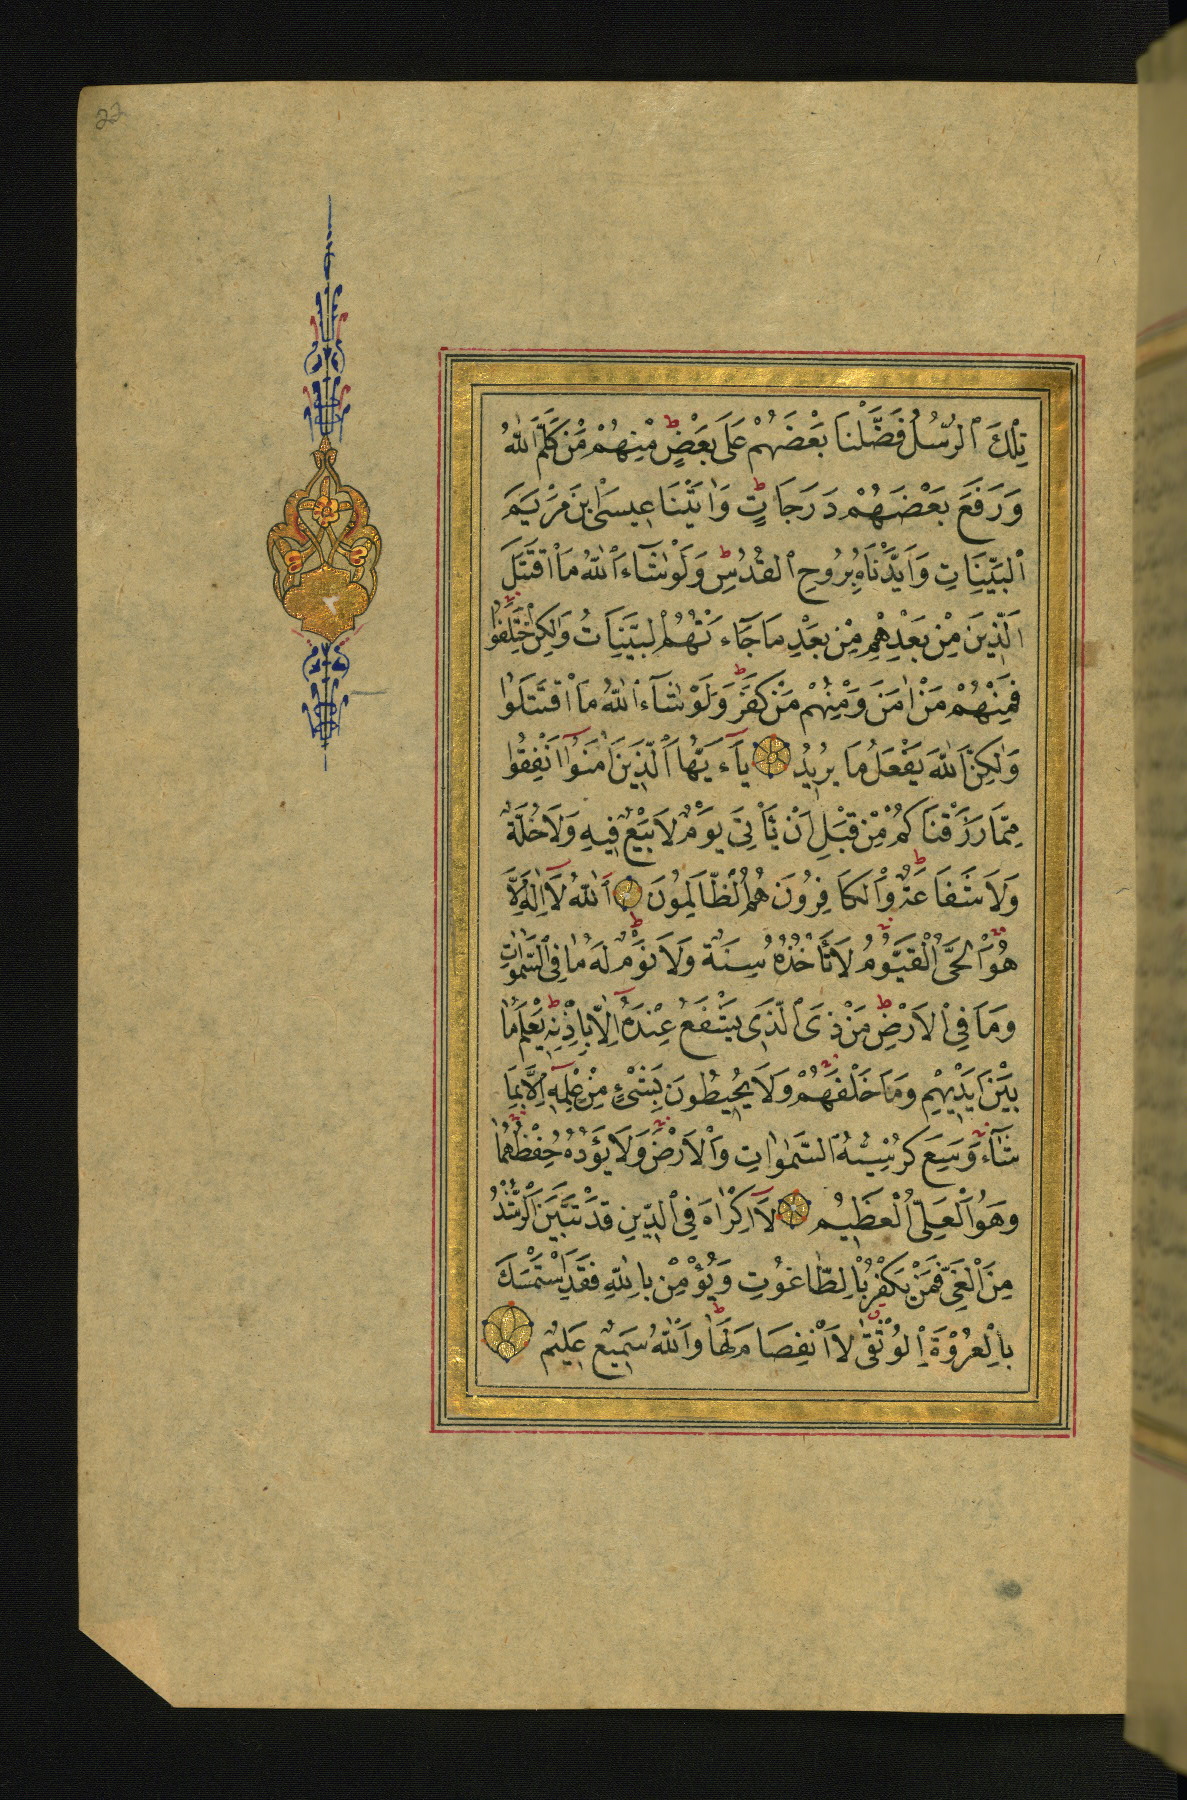 22
تِلْكَ ٱلرُّسُلُ فَضَّلْنَا بَعْضَهُمْ عَلَىٰ بَعْضٍ ط مِنْهُمْ مَنْ كَلَّمَ ٱللّٰهُ
وَرَفَعَ بَعْضَهُمْ دَرَجَاتٍ ط وَاٰتَيْنَا عِيسَىٰ بْنَ مَرْيَمَ
ٱلْبَيِّنَاتِ وَاَيَّدْنَاهُ بِرُوحِ ٱلْقُدُسِ ط وَلَوْ شَآءَ ٱللّٰهُ مَا ٱقْتَتَلَ
ٱلَّذِينَ مِنْ بَعْدِهِمْ مِنْ بَعْدِ مَا جَآءَتْهُمُ ٱلْبَيِّنَاتُ وَلٰكِنِ ٱخْتَلَفُوا
فَمِنْهُمْ مَنْ اٰمَنَ وَمِنْهُمْ مَنْ كَفَرَ ط وَلَوْ شَآءَ ٱللّٰهُ مَا ٱقْتَتَلُوا
وَلٰكِنَّ ٱللّٰهَ يَفْعَلُ مَا يُرِيدُ يَآءَيُّهَا ٱلَّذِينَ اٰمَنُوٓا اَنْفِقُوا
مِمَّا رَزَقْنَاكُمْ مِنْ قَبْلِ اَنْ يَأْتِيَ يَوْمٌ لَا بَيْعٌ فِيهِ وَلَا خُلَّةٌ
وَلَا شَفَاعَةٌ ط وَٱلْكَافِرُونَ هُمُ ٱلظَّالِمُونَ اَللّٰهُ لَآ اِلٰهَ اِلَّا
هُوَ ٱلْحَىُّ ٱلْقَيُّومُ لَا تَأْخُذُهُ سِنَةٌ وَلَا نَوْمٌ ط لَهُ مَا فِى ٱلسَّمٰوَاتِ
وَمَا فِى ٱلْاَرْضِ ط مَنْ ذَى ٱلَّذِى يَشْفَعُ عِنْدَهُٓ اِلَّا بِاِذْنِهِ ط يَعْلَمُ مَا
بَيْنَ اَيْدِيهِمْ وَمَا خَلْفَهُمْ وَلَا يُحِيطُونَ بِشَىْءٍ مِنْ عِلْمِهِٓ اِلَّا بِمَا
شَآءَ وَسِعَ كُرْسِيُّهُ ٱلسَّمٰوَاتِ وَٱلْاَرْضَ وَلَا يَؤُدُهُ حِفْظُهُمَا
وَهُوَ ٱلْعَلِىُّ ٱلْعَظِيمُ لَآ اِكْرَاهَ فِى ٱلدِّينِ قَدْ تَبَيَّنَ ٱلرُّشْدُ
مِنَ ٱلْغَىِّ فَمَنْ يَكْفُرْ بِٱلطَّاغُوتِ وَيُؤْمِنْ بِاللّٰهِ فَقَدِ ٱسْتَمْسَكَ
بِٱلْعُرْوَةِ ٱلْوُثْقَىٰ لَا ٱنْفِصَامَ لَهَا ط وَٱللّٰهُ سَمِيعٌ عَلِيمٌ